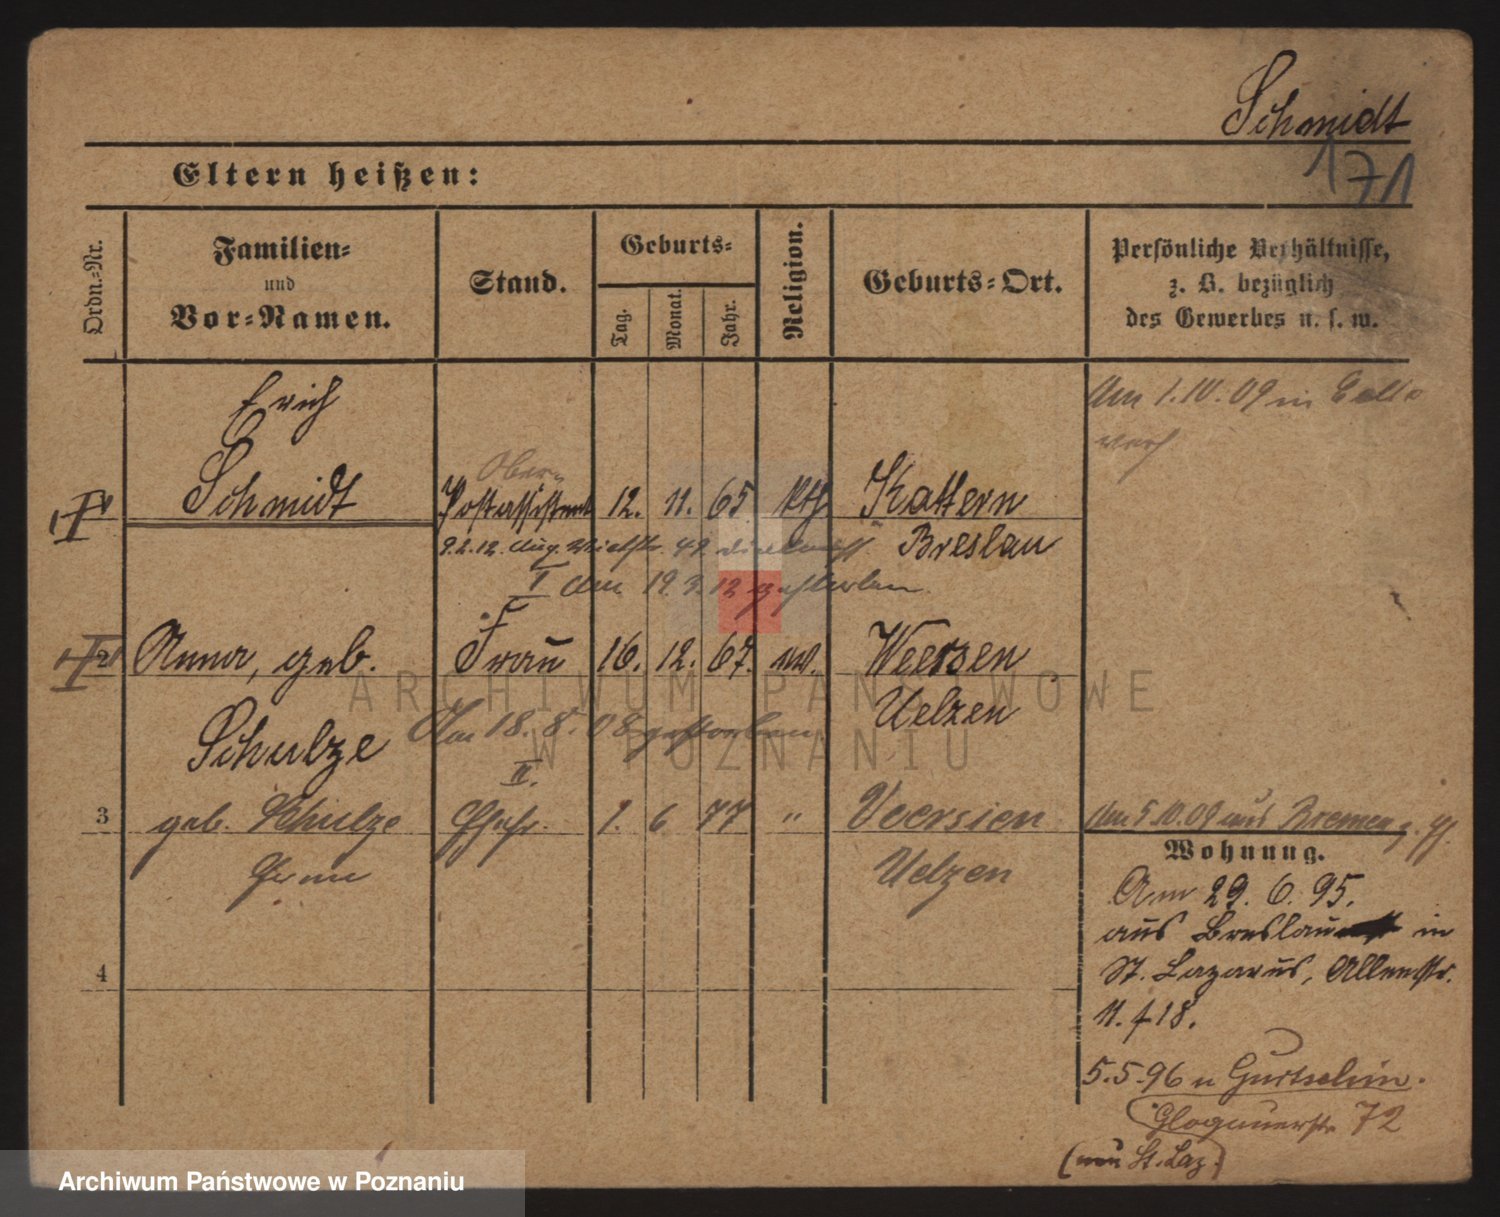 Schmidt
171
Eltern heißen:
Ordn.-Nr.
Familien-
und
Vor-Namen.
Stand.
Geburts-
Tag.
Monat.
Jahr.
Religion.
Geburts-Ort.
Persönliche Verhältnisse,
z. B. bezüglich
des Gewerbes u. s. w.
Erich
Schmidt
Ober-
Postassistent
12. 11. 65. kth
Kattern
Breslau
Am 1.10.09 in
9.2.12. 49
I am 19.3.12 gestorben
2 Anna, geb. Frau 16. 12. 67. Weersen
Schulze
Uelzen
Am 18. 8. 08 gestorben
II.
3 geb. Schulze Ehefr. 1. 6 77 " Veersien
Uelzen
Am 5.10.09 aus Bremen
4
Wohnung.
Am 29. 6. 95.
aus Breslau in
St. Lazarus,
11. f 18.
5.5.96 n Gurtschin.
Glogauerstr 72
(St. Laz.)
ARCHIWUM PAŃSTWOWE
W POZNANIU
Archiwum Państwowe w Poznaniu